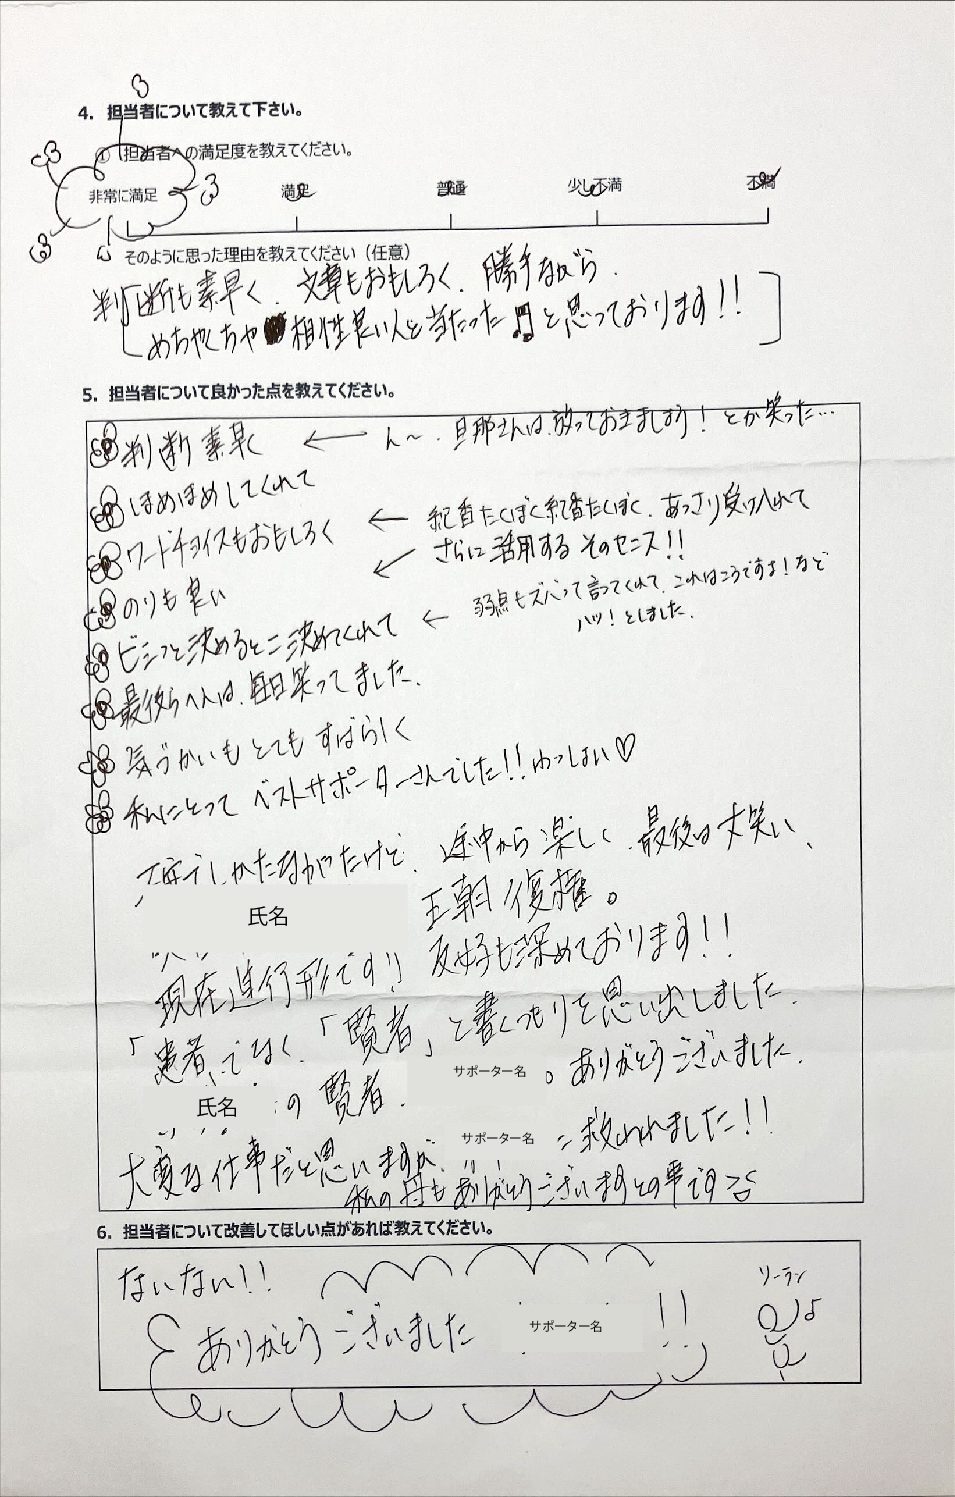 4. 担当者について教えて下さい。
① 担当者への満足度を教えてください。
非常に満足 満足 普通 少し不満 不満
そのように思った理由を教えてください（任意）
判断も素早く、文章もおもしろく、勝手ながら、
めちゃくちゃ 相性良い人と当たった♬と思っております!!
5. 担当者について良かった点を教えてください。
判断素早く ← ん〜、旦那さんは、放っておきましょう！とか笑った…
ほめほめしてくれて
ワードチョイスもおもしろく ← 紀香たくぼく紀香たくぼく、あっさり受け入れて
さらに活用するそのセンス!!
のりも良い
弱点もズバって言ってくれて、これはこうですよ！など
ハッ！としました。
ビシっと決めるとこ決めてくれて ←
最後らへんは、毎日笑ってました。
気づかいもとてもすばらしく
私にとってベストサポーターさんでした!!わっしょい♡
しかたなかったけど、途中から楽しく、最後は大笑い、
氏名
王朝復権。
現在進行形です!! 友好も深めております!!
「患者」でなく、「賢者」と書くつもりを思い出しました。
氏名 の賢者、 サポーター名 。ありがとうございました。
大変な仕事だと思いますが、 サポーター名 に救われました!!
私の母もありがとうございますとの事です
6. 担当者について改善してほしい点があれば教えてください。
ないない!!
ありがとうございました サポーター名 !!
ソーラン